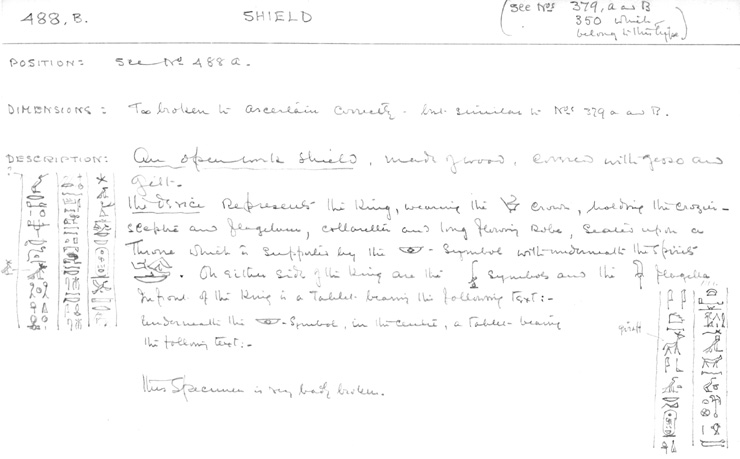 488, B.
SHIELD
(See Nos 379, a and B
350 which
belong to this type)
POSITION: See No 488 a.
DIMENSIONS: Too broken to ascertain correctly - but similar to Nos 379 a and B.
DESCRIPTION: An open work shield, made of wood, covered with gesso and
gilt.
The device represents the King, wearing the crown, holding the crozier-
sceptre and flagellum, collarette and long flowing robe, seated upon a
Throne which is supported by the - symbol with underneath the
. On either side of the King are the symbols and the flagella
In front of the King is a Tablet bearing the following text:-
Underneath the -Symbol, in the centre, a tablet bearing
the following text:-
This Specimen is very badly broken.